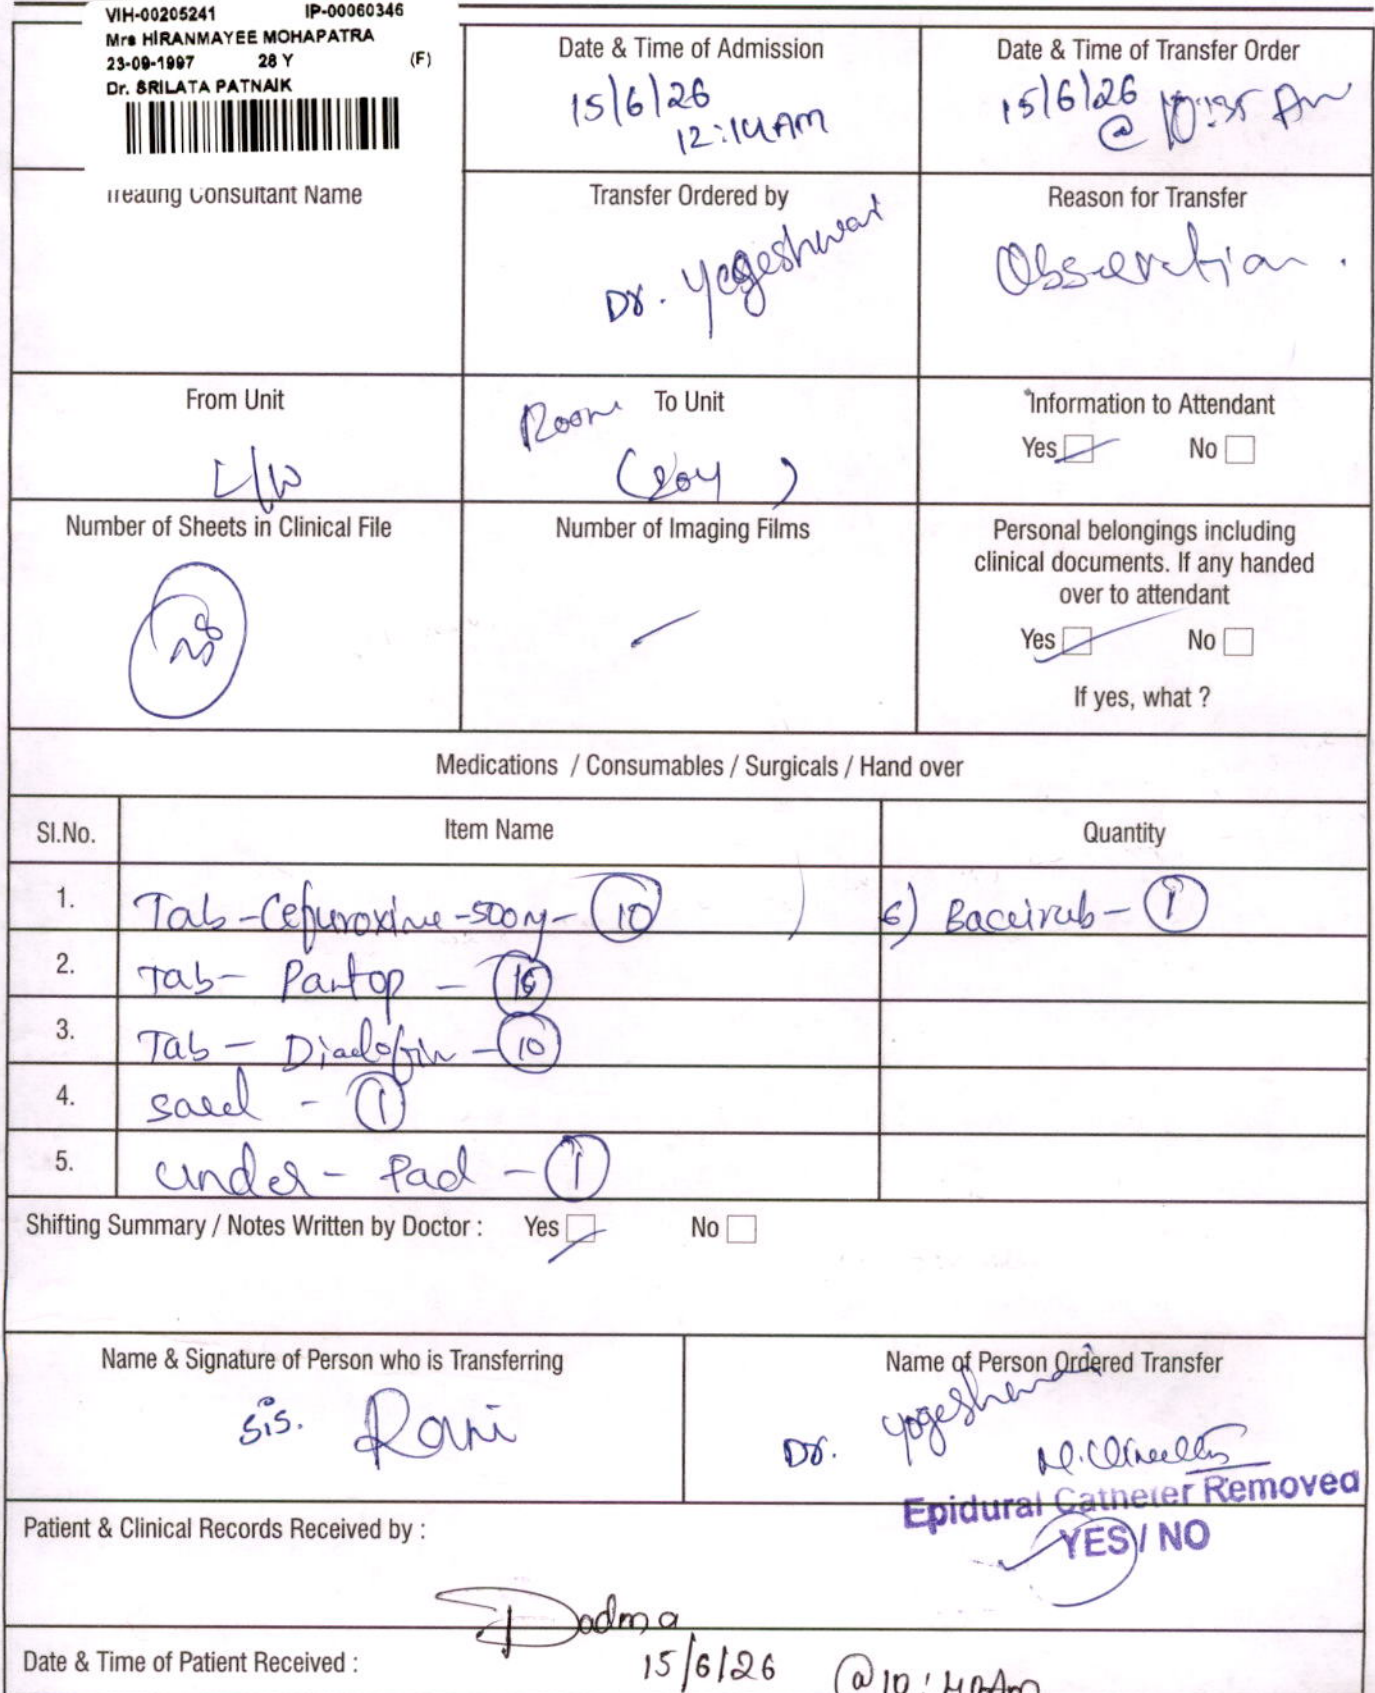 VIH-00205241 IP-00060346
Mrs HIRANMAYEE MOHAPATRA
23-09-1997 28 Y (F)
Dr. SRILATA PATNAIK
Date & Time of Admission
15/6/26
12:14AM
Date & Time of Transfer Order
15/6/26
@ 10:35 Am
Treating Consultant Name
Transfer Ordered by
Dr. Yogeshwari
Reason for Transfer
Obsservation.
From Unit
L/W
To Unit
Room
(204)
Information to Attendant
Yes No
Number of Sheets in Clinical File
28
Number of Imaging Films
Personal belongings including
clinical documents. If any handed
over to attendant
Yes No
If yes, what ?
Medications / Consumables / Surgicals / Hand over
Sl.No. Item Name Quantity
1. Tab-Cefuroxime-500mg- 10 6) - 1
2. Tab- Pantop - 15
3. Tab - - 10
4. - 1
5. under- Pad - 1
Shifting Summary / Notes Written by Doctor : Yes No
Name & Signature of Person who is Transferring
sis. Rani
Name of Person Ordered Transfer
Dr. Yogeshwari
Epidural Catheter Removed
YES / NO
Patient & Clinical Records Received by :
Padma
Date & Time of Patient Received : 15/6/26 @10:40Am